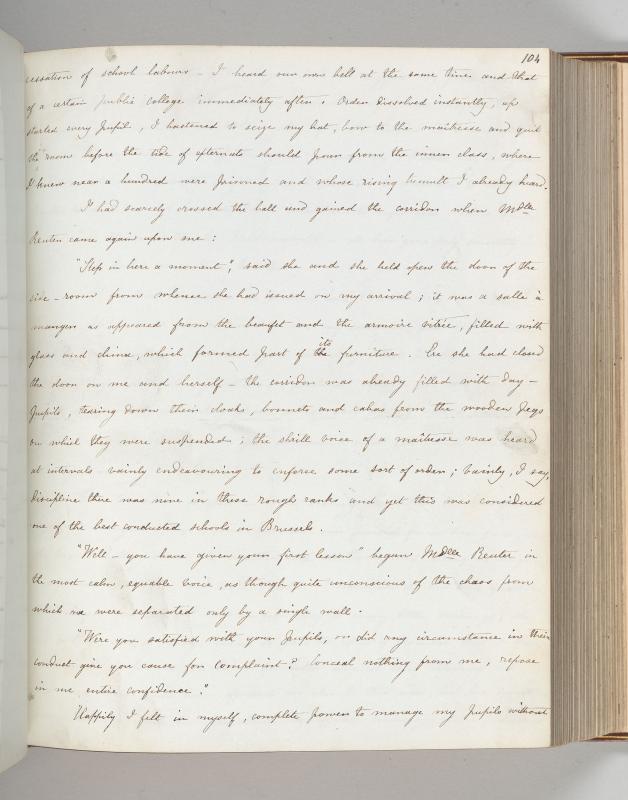 104
cessation of school labours – I heard our own bell at the same time and that
of a certain public college immediately after. Order dissolved instantly, up
started every pupil, I hastened to seize my hat, bow to the maîtresse and quit
the room before the tide of externats should pour from the inner class, where
I knew near a hundred were prisoned and whose rising tumult I already heard.
I had scarcely crossed the hall and gained the corridor when Mdlle
Reuter came again upon me :
"Step in here a moment", said she and she held open the door of the
side-room from whence she had issued on my arrival ; it was a salle à
manger as appeared from the beaufet and the armoire vitrée, filled with
glass and china, which formed part of the its furniture. Ere she had closed
the door on me and herself – the corridor was already filled with day-
pupils, tearing down their cloaks, bonnets and cabas from the wooden pegs
on which they were suspended ; the shrill voice of a maîtresse was heard
at intervals vainly endeavouring to enforce some sort of order ; vainly, I say,
discipline there was none in these rough ranks and yet this was considered
one of the best conducted schools in Brussels.
"Well – you have given your first lesson" began Mdlle Reuter in
the most calm, equable voice, as though quite unconscious of the chaos from
which we were separated only by a single wall.
"Were you satisfied with your pupils, or did any circumstance in their
conduct give you cause for complaint ? Conceal nothing from me, repose
in me entire confidence."
Happily I felt in myself, complete power to manage my pupils without